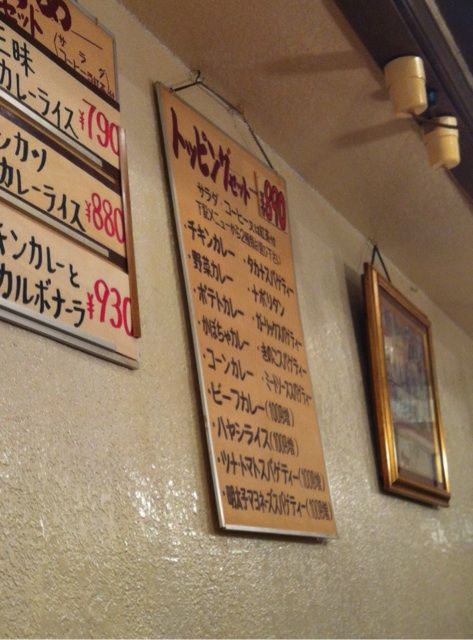 め
セット(サラダ)
(コーヒー又は紅茶付)
三昧
カレーライス ¥790
カツ
カレーライス ¥880
チキンカレーと
カルボナーラ ¥930
トッピングセット ¥890
サラダ・コーヒー又は紅茶付
下記メニューから2種類お選び下さい
・チキンカレー ・タカナスパゲティー
・野菜カレー ・ナポリタン
・ポテトカレー ・ガーリックスパゲティー
・かぼちゃカレー ・きのこスパゲティー
・コーンカレー ・ミートソーススパゲティー
・ビーフカレー(100円増)
・ハヤシライス(100円増)
・ツナ・トマトスパゲティー(100円増)
・明太子マヨネーズスパゲティー(100円増)